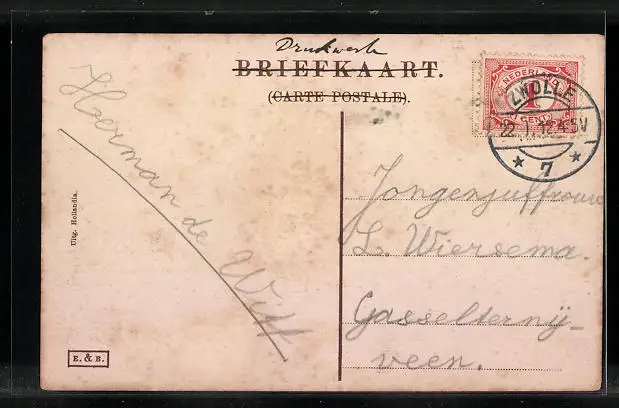 Drukwerk
BRIEFKAART.
(CARTE POSTALE).
NEDERLAND
1
CENT
ZWOLLE
22.1.12.4-5V
* 7 *
Herman de Witt
Uitg. Hollandia.
E. & B.
Jongenjuffrouw
L. Wiersema.
Gasselternij-
veen.